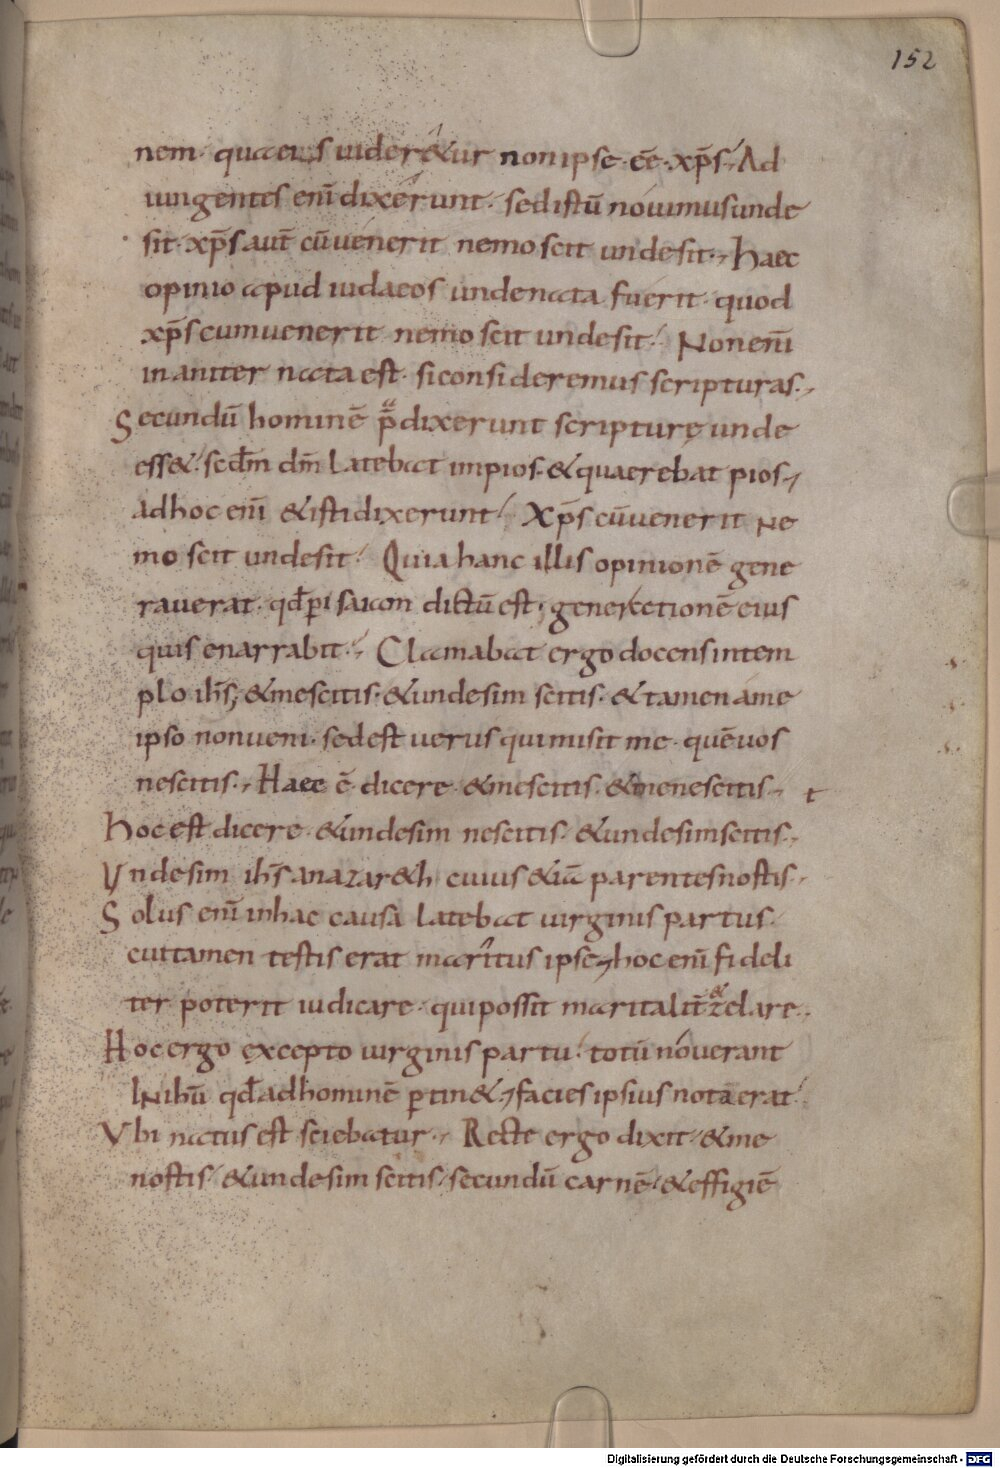 152
nem· qua eis uideretur non ipse· ee̅· xp̅s· Ad
iungentes eni̅ dixerunt· sed istu̅ nouimus unde
sit· xp̅s aut̅ cu̅ uenerit nemo scit unde sit· Haec
opinio apud iudaeos unde nata fuerit· quod
xp̅s cum uenerit nemo scit unde sit· Non eni̅
inaniter nata est· si consideremus scripturas·
Secundu̅ homine̅ p̅dixerunt scripturę unde
esset· scd̅m dm̅ latebat impios· & quaerebat pios·
ad hoc eni̅ & isti dixerunt· Xp̅s cu̅ uenerit ne
mo scit unde sit· Quia hanc illis opinione̅ gene
rauerat· qd̅ p̲ isaian dictu̅ est· generatione̅ eius
quis enarrabit· Clamabat ergo docens in tem
plo ih̅s· & me scitis· & unde sim scitis· & tamen a me
ipso non ueni· sed est uerus qui misit me· que̅ uos
nescitis· Haec e̅ dicere· & me scitis· & me nescitis·
t
Hoc est dicere· & unde sim nescitis· & unde sim scitis·
Vnde sim ih̅s a nazareth cuius etia̅ parentes nostis·
Solus eni̅ in hac causa latebat uirginis partus·
cui tamen testis erat maritus ipse· hoc eni̅ fideli
ter poterit iudicare· qui possit maritalit̅ & zelare·
Hoc ergo excepto uirginis partu· totu̅ nouerant
IN ihu̅ qd̅ ad homine̅ p̲tinet· facies ipsius nota erat·
Vbi natus est sciebatur· Recte ergo dixit· & me
nostis· & unde sim scitis· secundu̅ carne̅· & effigie̅
Digitalisierung gefördert durch die Deutsche Forschungsgemeinschaft - DFG